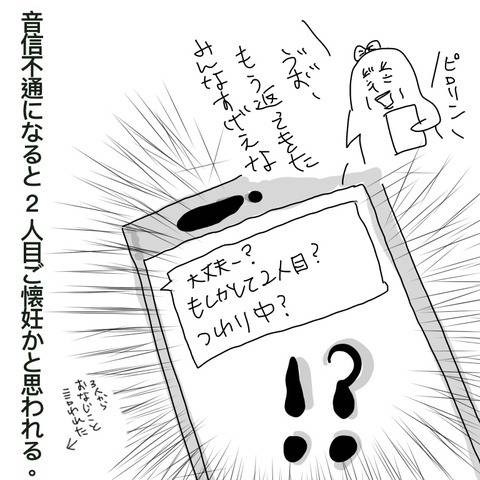 ピロリン
うぉー、
もう返てきた
みんなすげえな
大丈夫ー?
もしかして2人目?
つわり中?
!?
3人から
おなじこと
言われた
音信不通になると2人目ご懐妊かと思われる。